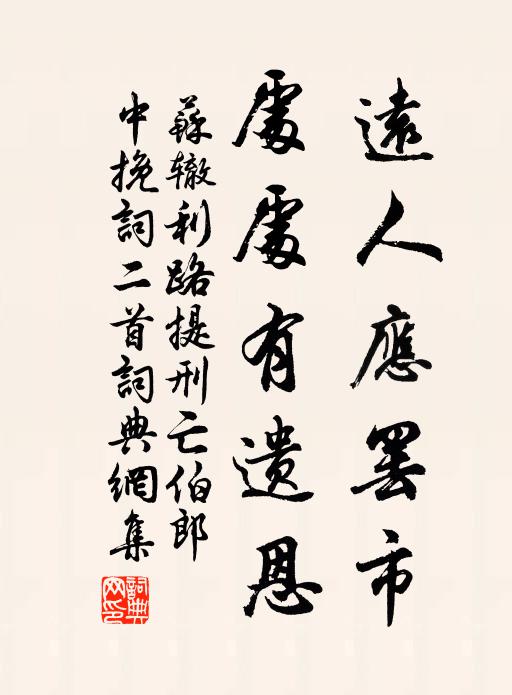 遠人應罷市
處處有遺恩
蘇辙利路提刑亡伯郎
中挽詞二首詞典網集
詞典网印